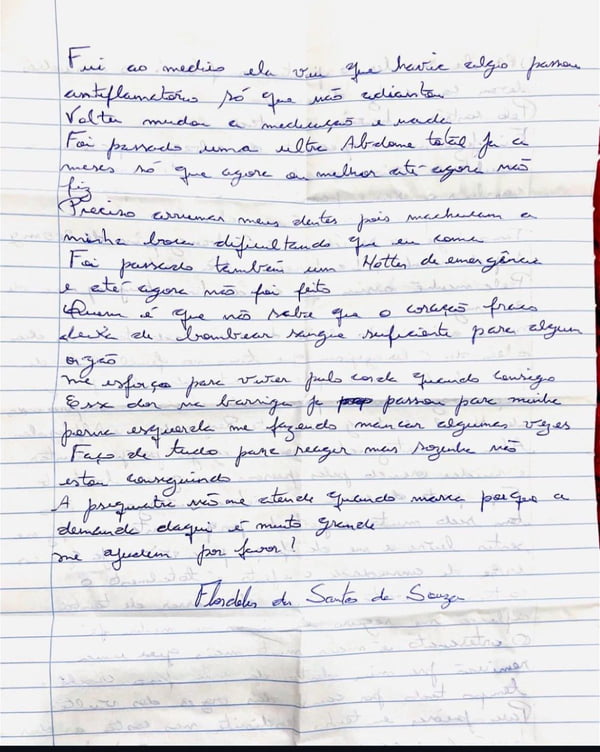 Fui ao medico ela viu que havia algo passou
antiflamatório só que não adiantou
Voltei mudou a medicação e nada
Foi passado uma ultra Abdome total ja a
meses só que agora ou melhor até agora não
fiz
Preciso arrumar meus dentes pois machucam a
minha boca dificultando que eu coma
Foi passado também um Holter de emergência
e até agora não foi feito
Quem é que não sabe que o coração fraco
deixa de bombear sangue suficiente para algum
orgão
me esforço para viver pulo corda quando consigo
Essa dor na barriga ja passou para minha
perna esquerda me fazendo mancar algumas vezes
Faço de tudo para reagir mas sozinha não
estou conseguindo
A psiquiatra não me atende quando marca porque a
demanda daqui é muito grande
me ajudem por favor!
dos Santos de Souza